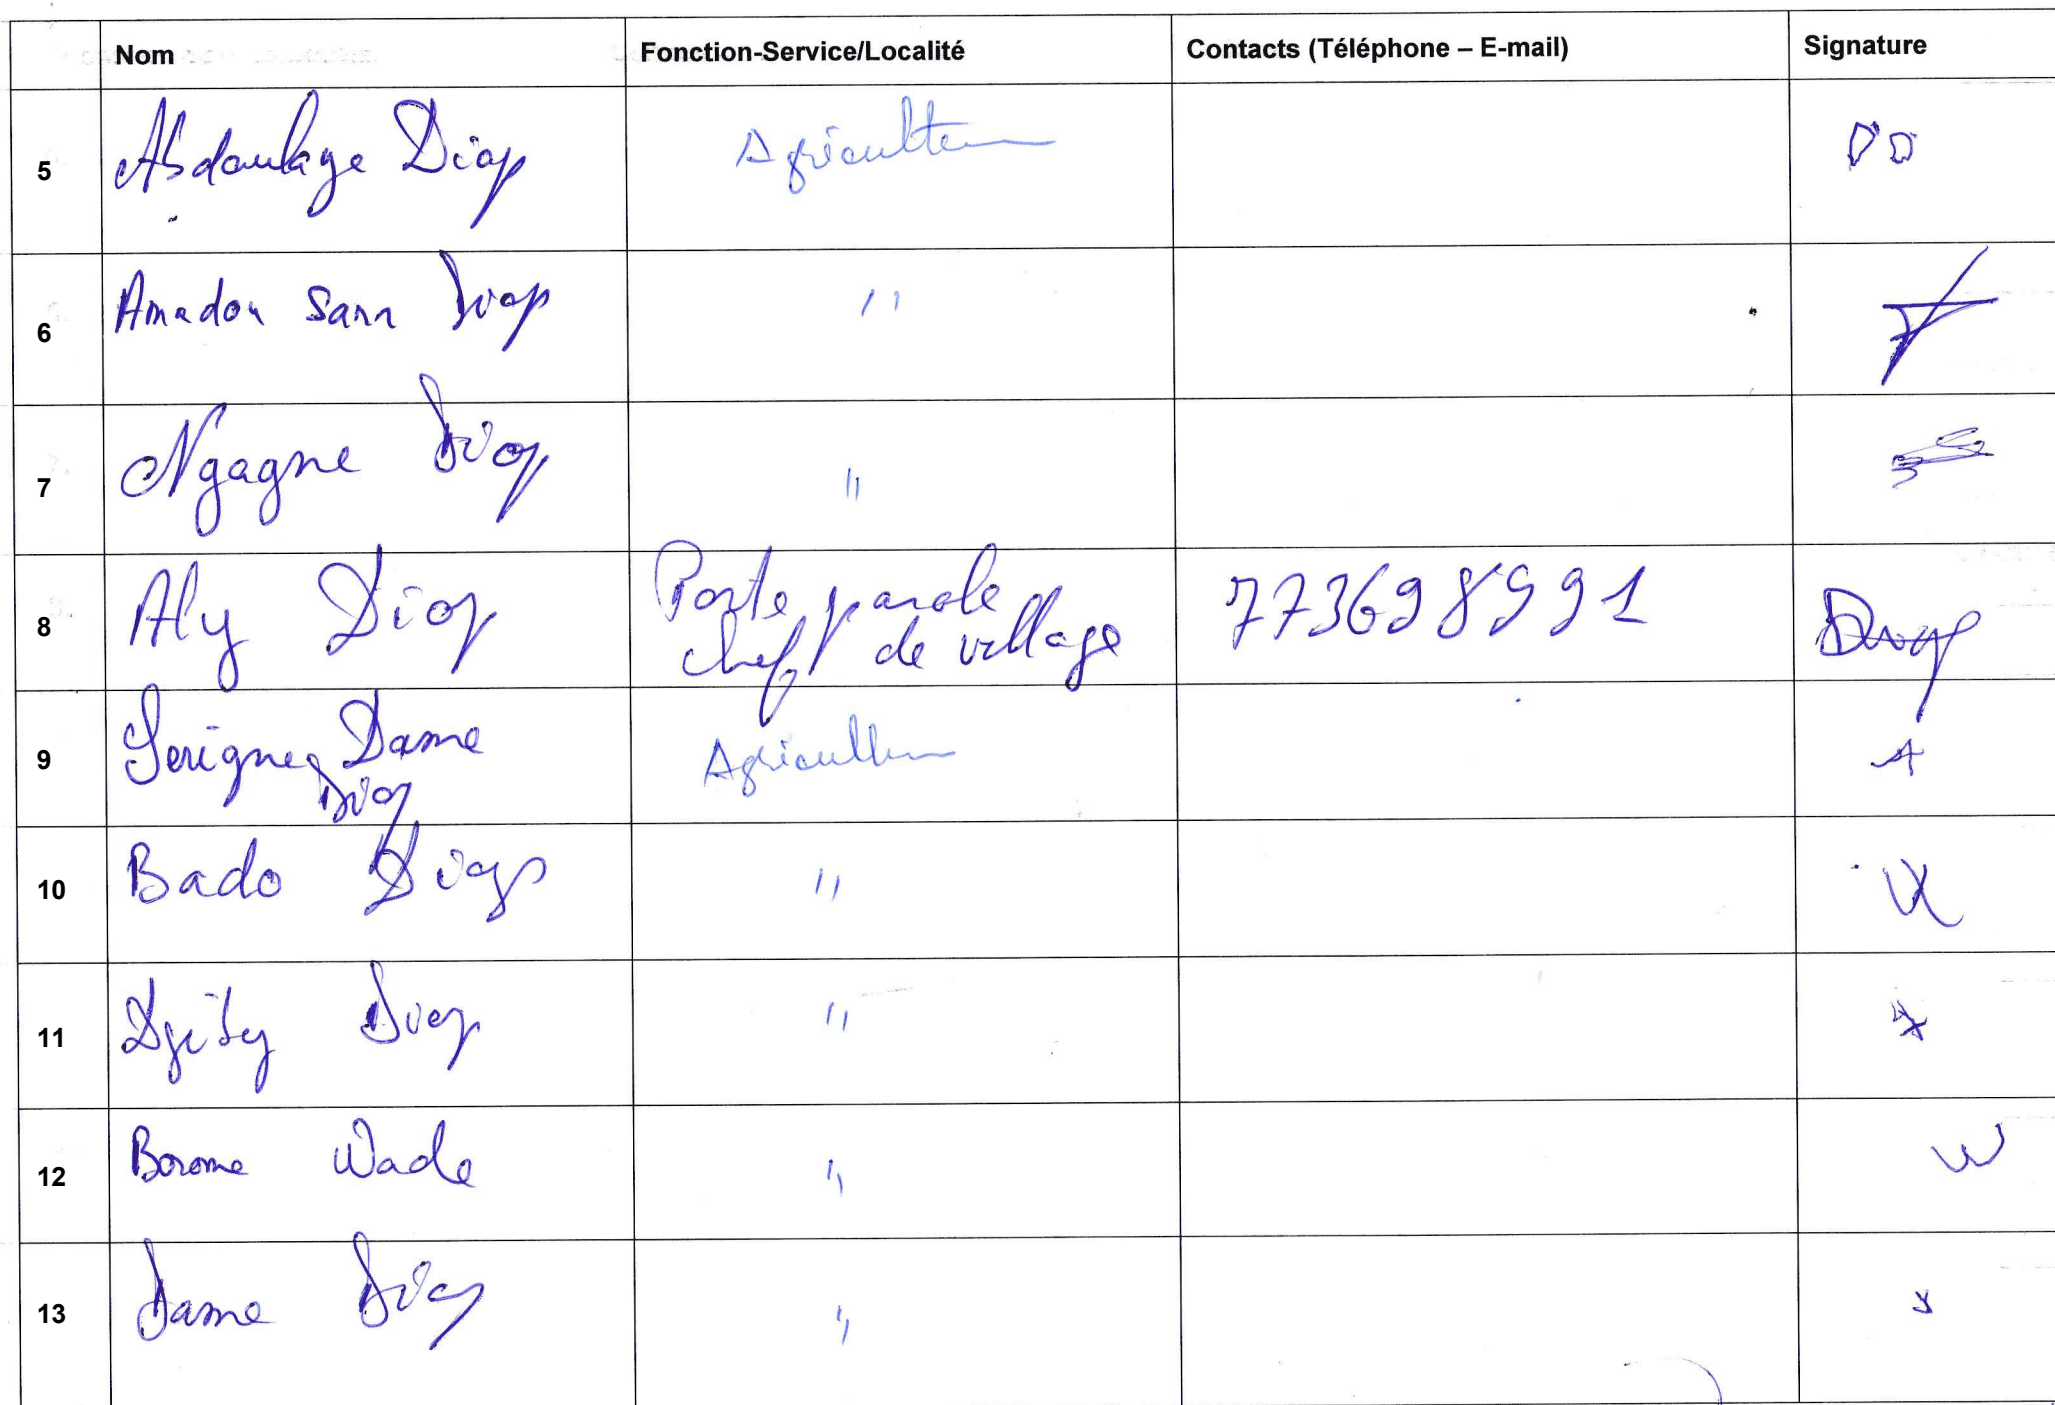 Nom Fonction-Service/Localité Contacts (Téléphone – E-mail) Signature
5 Abdoulaye Diop Agriculteur
6 Amadou Sann Diop //
7 Ngagne Diop //
8 Aly Diop Porte parole 773698991
chef de village Diop
9 Serigne Dame Agriculteur
Diop
10 Bado Diop //
11 Djiby Diop //
12 Borome Wade //
13 Dame Diop //